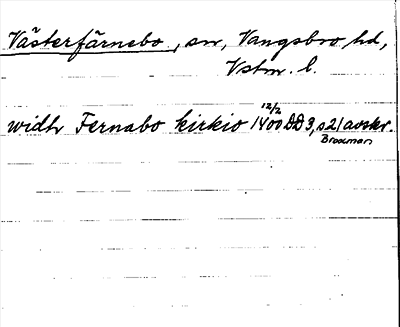 Västerfärnebo, sn, Vangsbro hd,
Vstm. l.
widh Fernabo kirkio 12/2 1400 DD 3, s 21 avskr.
Brocman